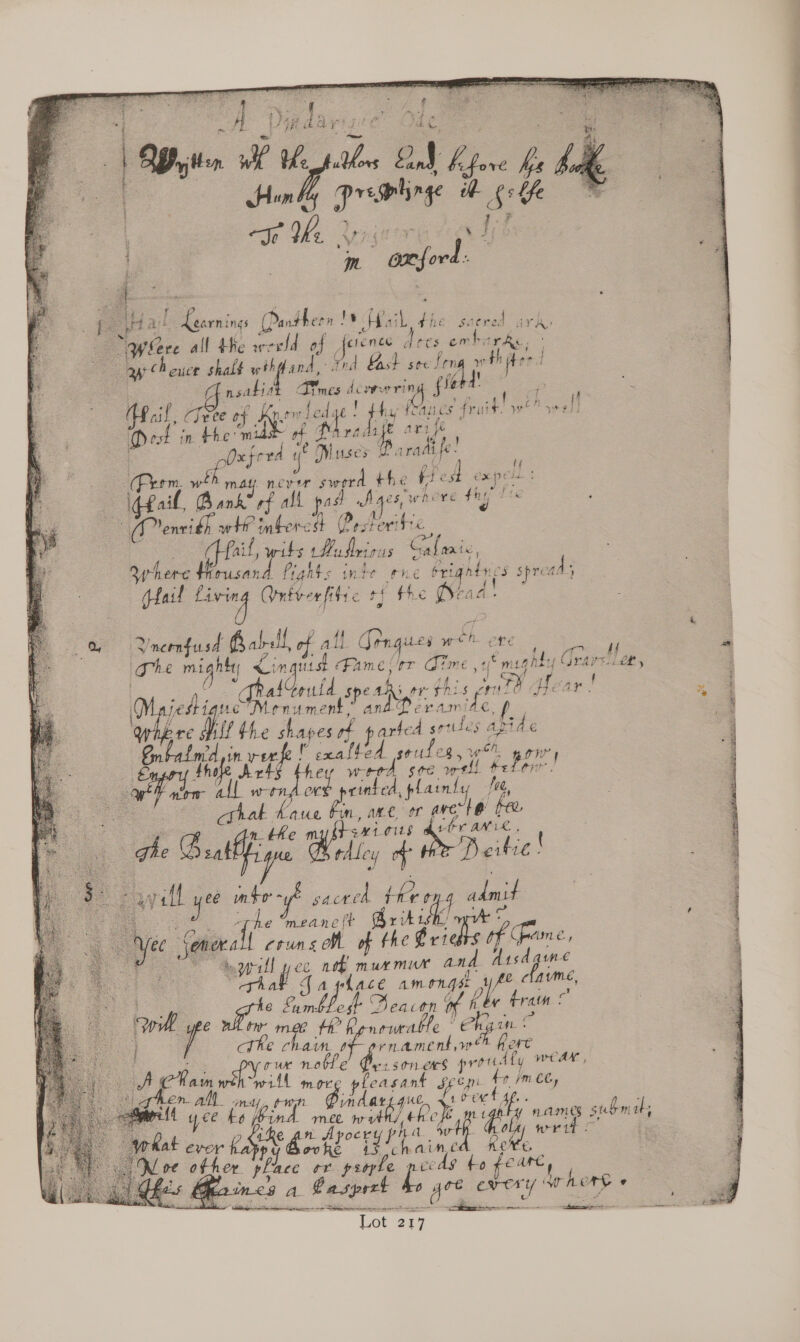 A Pindarique Ode
Written wth the Authors hand before his booke
Humbly presentinge it selfe
To the
in oxford:
Hail Learnings Pantheon! Hail, the sacred ark,
Where all the world of science does embarke,
wch euer shall withstand, and hast soe long withstood
Insatiat Times devowring flood!
Hail, Tree of Knowledge! thy leaues fruit! wch well
Dost in the midst of Paradise arise
Oxford ye Muses Paradise!
From wch may never sword the blest expell:
Hail, Bank of all past Ages, where they lie
T'enrich wth interest Posteritie
Hail, wits illustrious Galaxie,
Where thousand lights into one brightnes spread;
Hail Living Universitie of the Dead!
2 Vnconfusd Babell, of all Tongues wch ere
The mighty Linguist Fame, or Time, ye mighty Traveller,
That could speake, or this could Hear!
Majestique Monument, and Peramide,
Where still the shapes of parted soules abide
Embalm'd, in verse! exalted soules, wch now,
Enjoy those Arts they wood soe well below!
wch now all wonders printed, plainly see,
That haue bin, are, or are to bee
In the mysterious Librarie,
The Beatifique Bodley of the Deitie!
3 will yee into ye sacred throng admit
The meanest British wit?
Yee Generall counsell of the Priests of Fame,
will yee not murmur and disdaine
That I a place amongst yee claime,
The humblest Deacon of her train?
Will yee allow mee th' honourable Chain?
The chain of ornament, wch here
Your noble Prisoners proudly weare,
A Chain wch will more pleasant seem to mee,
Then all my own Pindarique
will yee to bind mee with those mighty names submit,
Like an Apocrypha wth holy writ?
What ever happy Booke is chained here,
Noe other place or people needs to feare,
His Chaines a Pasport to goe every where.
Lot 217